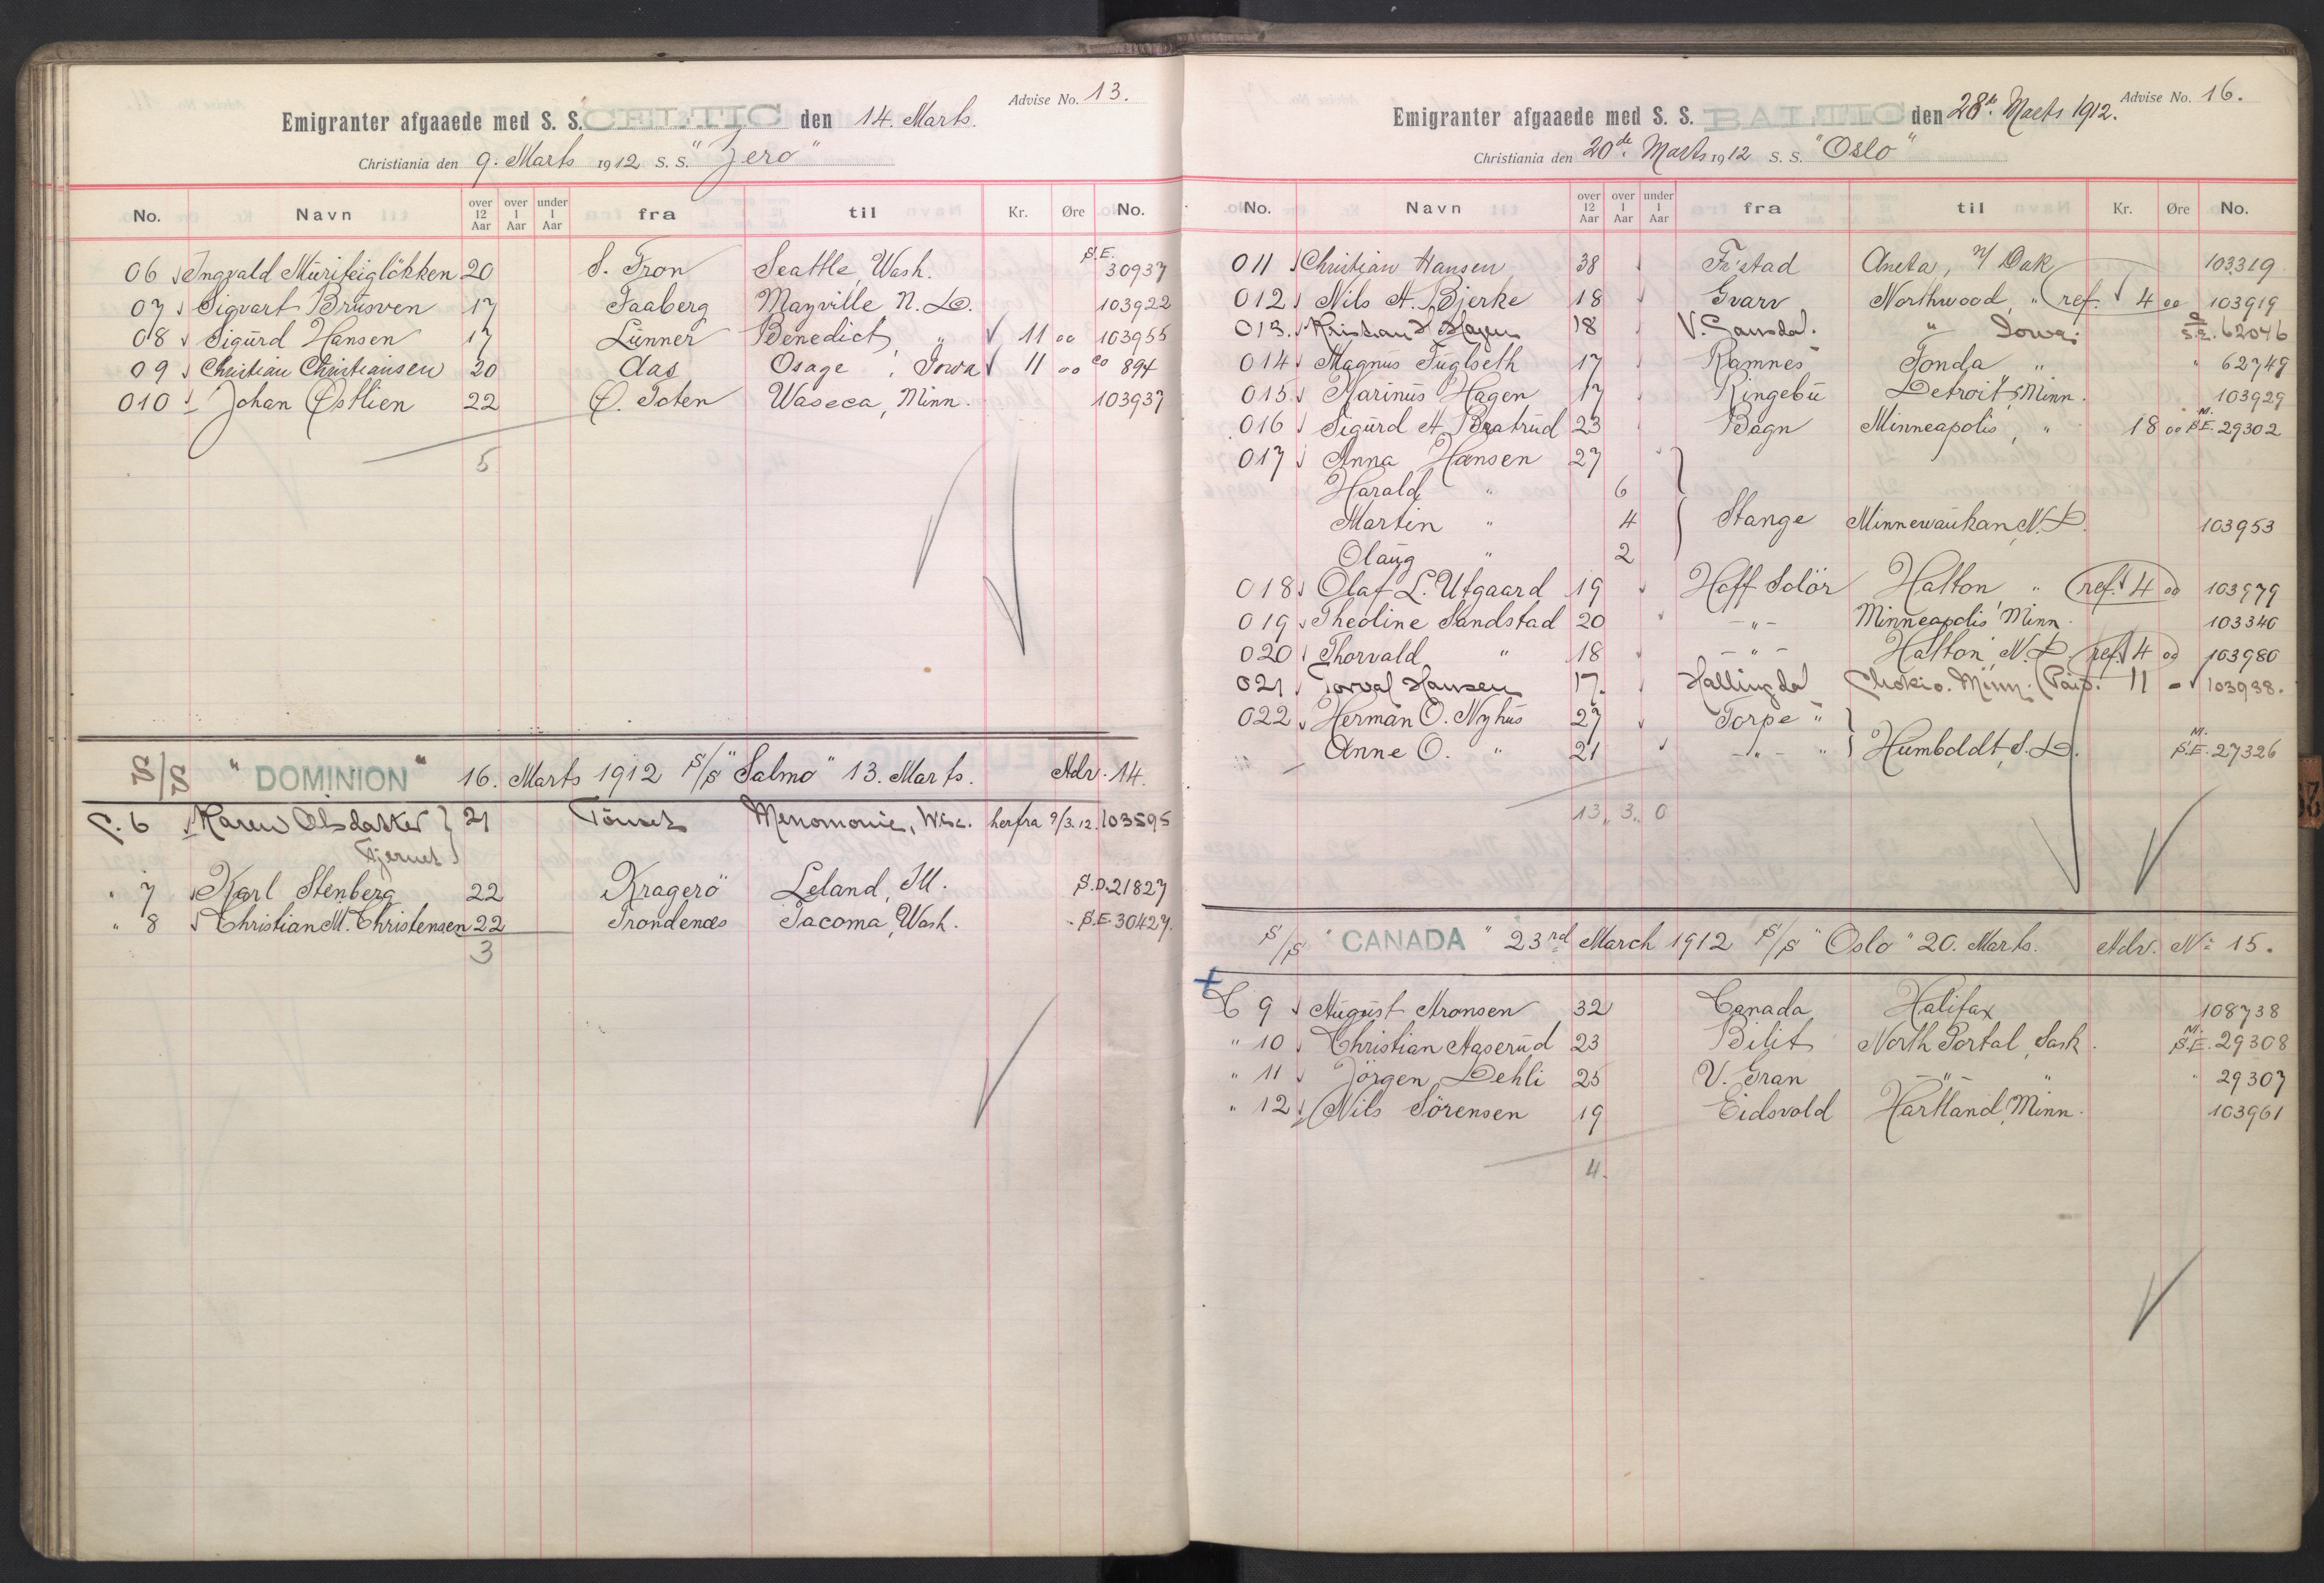 Advise No. 13.
Emigranter afgaaede med S. S. CELTIC den 14. Marts.
Christiania den 9. Marts 1912 S. S. "Zero"
No. Navn over 12 Aar over 1 Aar under 1 Aar fra til Kr. Øre No.
06 Ingvald 20 S. Fron Seattle, Wash. S.E. 30937
07 Sigvart Brusven 17 Faaberg Mayville N. D. 103922
08 Sigurd Hansen 17 Lunner Benedict " 11 00 103955
09 Christian Christiansen 20 Aas Osage, Iowa 11 00 co 894
010 Johan Østlien 22 Ø. Toten Waseca, Minn. 103937
5
S/S "DOMINION" 16. Marts 1912 S/S "Salmo" 13. Marts. Adv. 14.
C. 6 Karen Olsdatter } 21 Tönset Menomonie, Wisc. herfra 9/3.12. 103595
Tjernet
" 7 Karl Stenberg 22 Kragerö Leland, Ill. S.D. 21827
" 8 Christian M. Christensen 22 Trondenæs Tacoma, Wash. S.E. 30427.
3
Advise No. 16.
Emigranter afgaaede med S. S. BALTIC den 28de Marts 1912.
Christiania den 20de Marts 1912 S. S. "Oslo"
No. Navn over 12 Aar over 1 Aar under 1 Aar fra til Kr. Øre No.
011 Christian Hansen 38 Fr.stad Aneta, N/ Dak 103319
012 Nils A. Bjerke 18 Gvarv Northwood, " ref. 4 00 103919
013. Kristian H Hagen 18 V. Gausdal. " Iowa. 62046
014 Magnus Fuglseth 17 Ramnes Fonda " " 62749
015 Karinus Hagen 17 Ringebu Detroit, Minn. 103929
016 Sigurd A. Bratrud 23 Bagn Minneapolis, " 18 00 M. S.E. 29302
017 Anna Hansen 27
Harald " 6
Martin " 4 Stange Minnewaukan, N. D. 103953
Olaug " 2
018 Olaf L. Utgaard 19 Hoff Solör Hatton " ref. 4 00 103979
019 Theoline Sandstad 20 - " - Minneapolis Minn. 103340
020 Thorvald " 18 - " - Hatton, N. D. ref. 4 00 103980
021 Torval Hansen 17. Hallingdal Chokio. Minn. (Paid. 11 - 103938.
022 Herman O. Nyhus 27 Torpe "
" Anne O. " 21 - " - " Humboldt, S. D. M. S.E. 27326
13 " 3 " 0
S/S "CANADA" 23rd March 1912 S/S "Oslo" 20. Marts. Adv. No 15.
+
C 9 August Aronsen 32 Canada Halifax 108738
" 10 Christian Aaserud 23 Bilit North Portal, Sask. M. S.E. 29308
" 11 Jörgen Dehli 25 V. Gran - " - " " 29307
" 12 Nils Sörensen 19 Eidsvold Hartland, Minn. 103961
4.